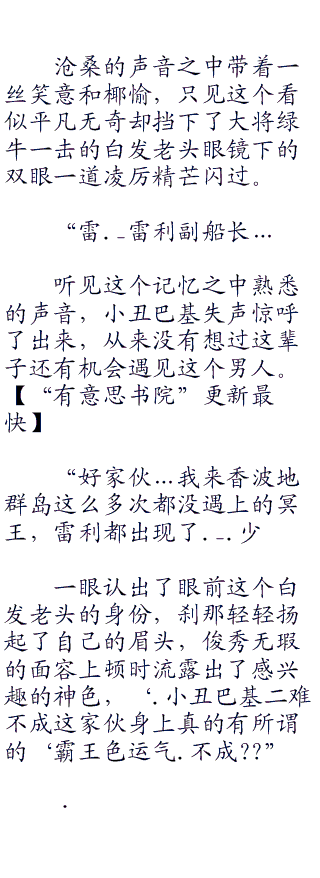 沧桑的声音之中带着一
丝笑意和椰愉，只见这个看
似平凡无奇却挡下了大将绿
牛一击的白发老头眼镜下的
双眼一道凌厉精芒闪过。
“雷._雷利副船长…
听见这个记忆之中熟悉
的声音，小丑巴基失声惊呼
了出来，从来没有想过这辈
子还有机会遇见这个男人。
【“有意思书院”更新最
快】
“好家伙…我来香波地
群岛这么多次都没遇上的冥
王，雷利都出现了._.少
一眼认出了眼前这个白
发老头的身份，刹那轻轻扬
起了自己的眉头，俊秀无瑕
的面容上顿时流露出了感兴
趣的神色，‘.小丑巴基二难
不成这家伙身上真的有所谓
的‘霸王色运气.不成??”
.